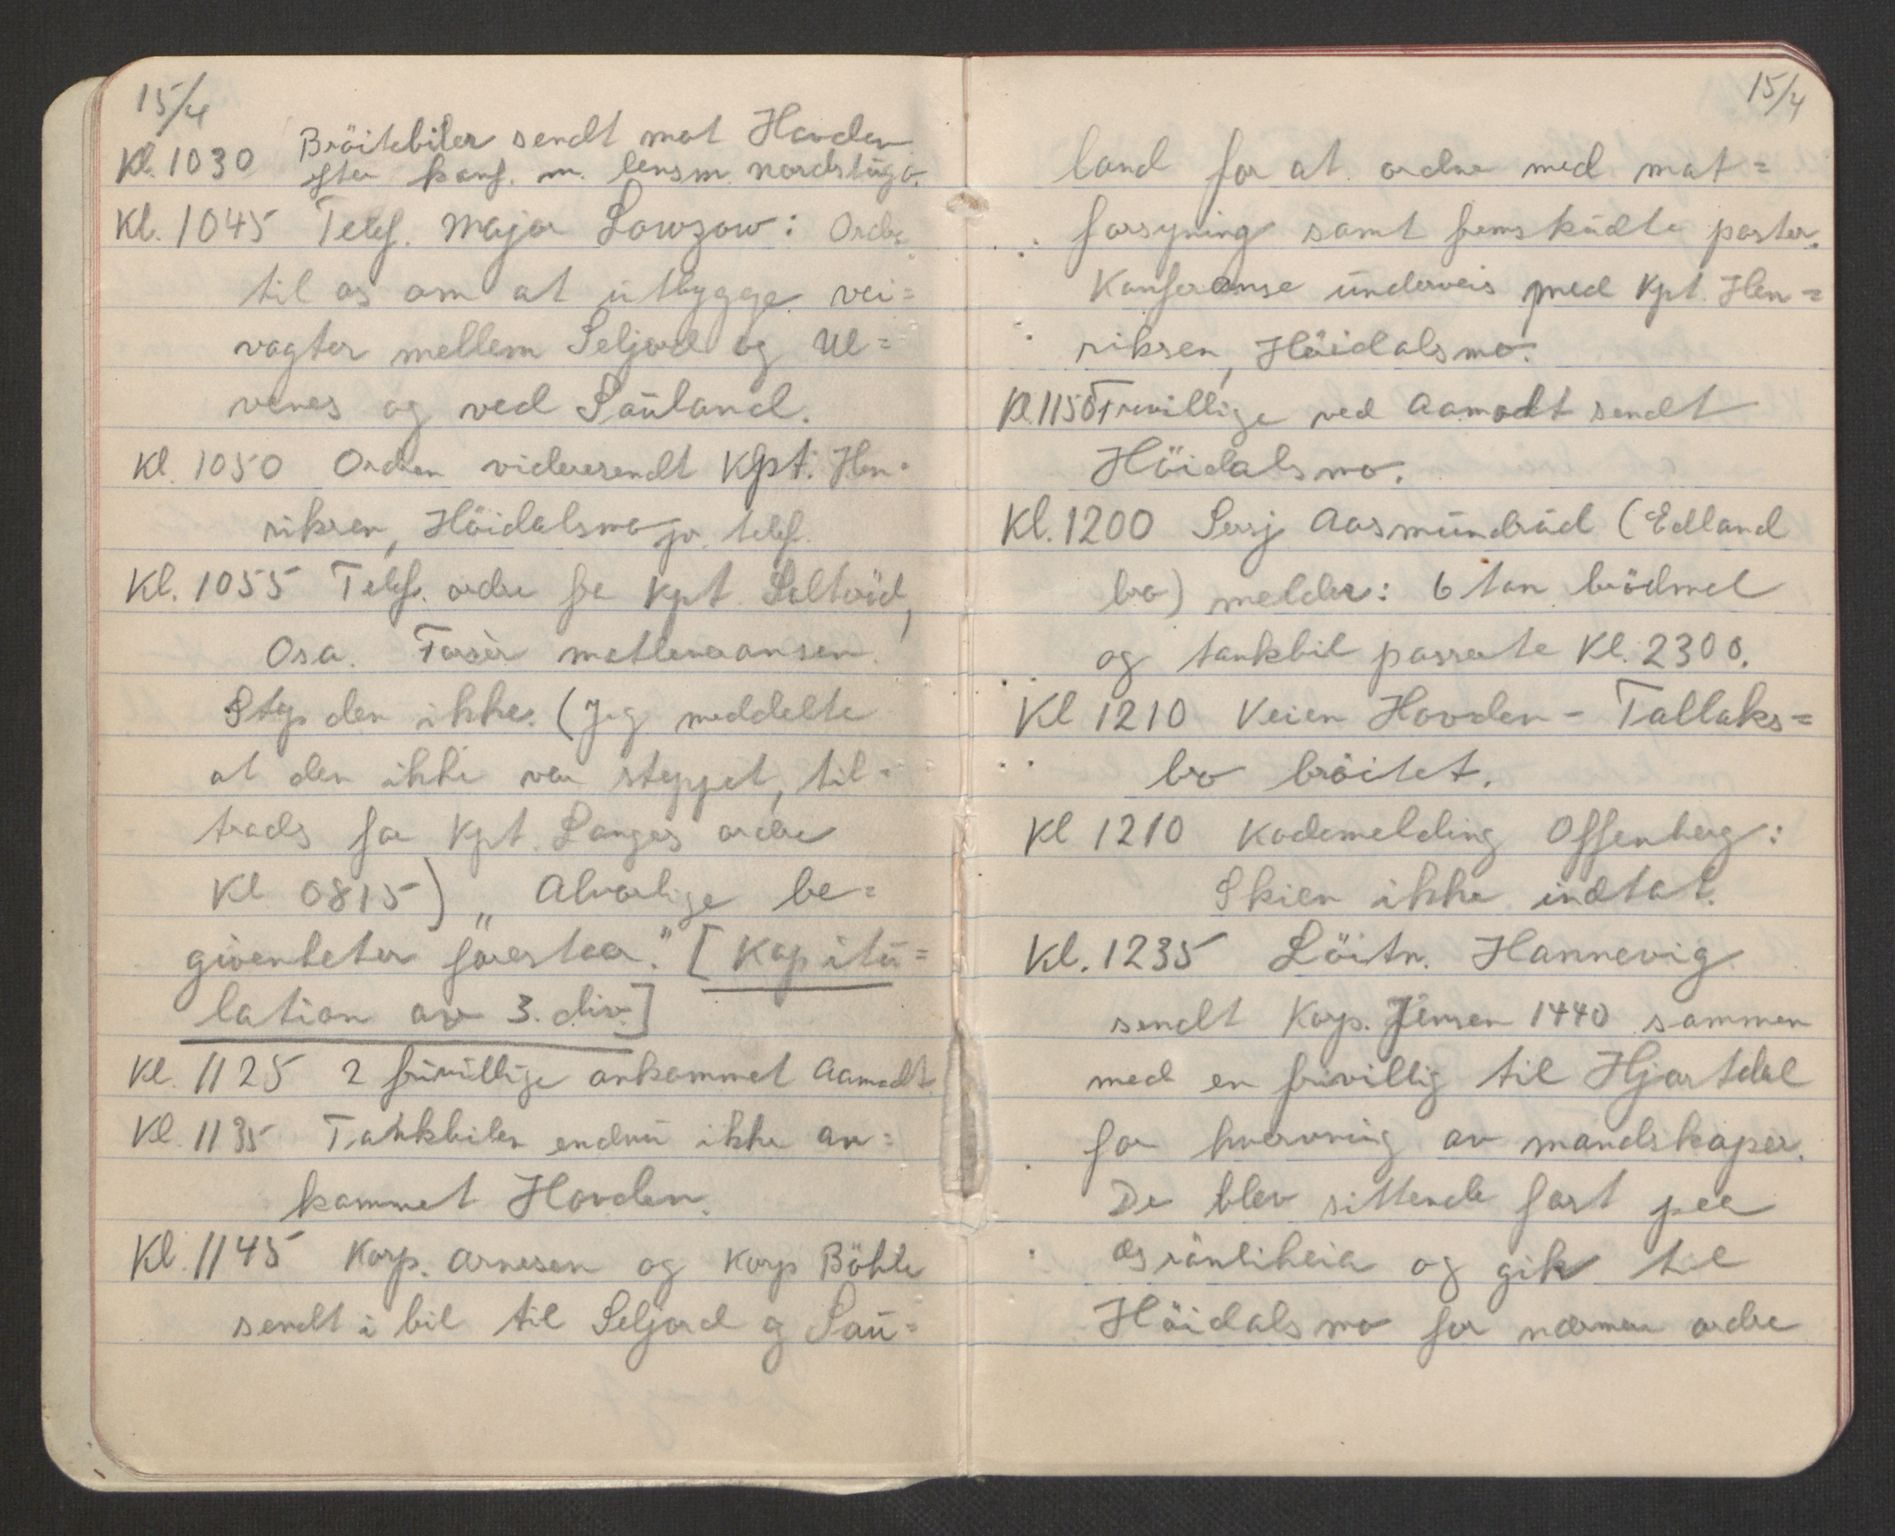 15/4
Kl. 1030 Bröitebiler sendt mot Hovden
efter konf. m. lensm. Nordstüga.
Kl. 1045 Telef. Major Lowzow: Ordre
til os om at utbygge vei=
vagter mellem Seljord og Ul=
venes og ved Saüland.
Kl. 1050 Ordren videresendt Kpt. Hen=
riksen, Höidalsmo pr. telef.
Kl. 1055 Telef. ordre fra Kpt.
Osa. Forsèr matleveransen.
Stop den ikke. (Jeg meddelte
at den ikke var stoppet, til=
trods for Kpt. Langes ordre
Kl. 0815) „Alvorlige be=
givenheter forestaar." [Kapitü=
lation av 3. div.]
Kl. 1125 2 frivillige ankommet Aamodt.
Kl. 1135 Tankbilen endnü ikke an=
kommet Hovden.
Kl. 1145 Korp. Arnesen og Korp Böhle
sendt i bil til Seljord og Saü=
15/4
land for at ordne med mat=
forsyning samt fremsküdte poster.
Konferanse ünderveis med Kpt. Hen=
riksen, Höidalsmo.
Kl. 1150 Frivillige ved Aamodt sendt
Höidalsmo.
Kl. 1200 Sersj Aasmündrüd (Edland
bro) melder: 6 ton brödmel
og tankbil passerte Kl. 2300.
Kl 1210 Veien Hovden - Tallaks=
bro bröitet.
Kl 1210 Kodemelding Offenberg:
Skien ikke indtat.
Kl. 1235 Löitn. Hannevig
sendt Korp. Jensen 1440 sammen
med en frivillig til Hjartdal
for hverving av mandskaper.
De blev sittende fast paa
og gik til
Höidalsmo for nærmere ordre